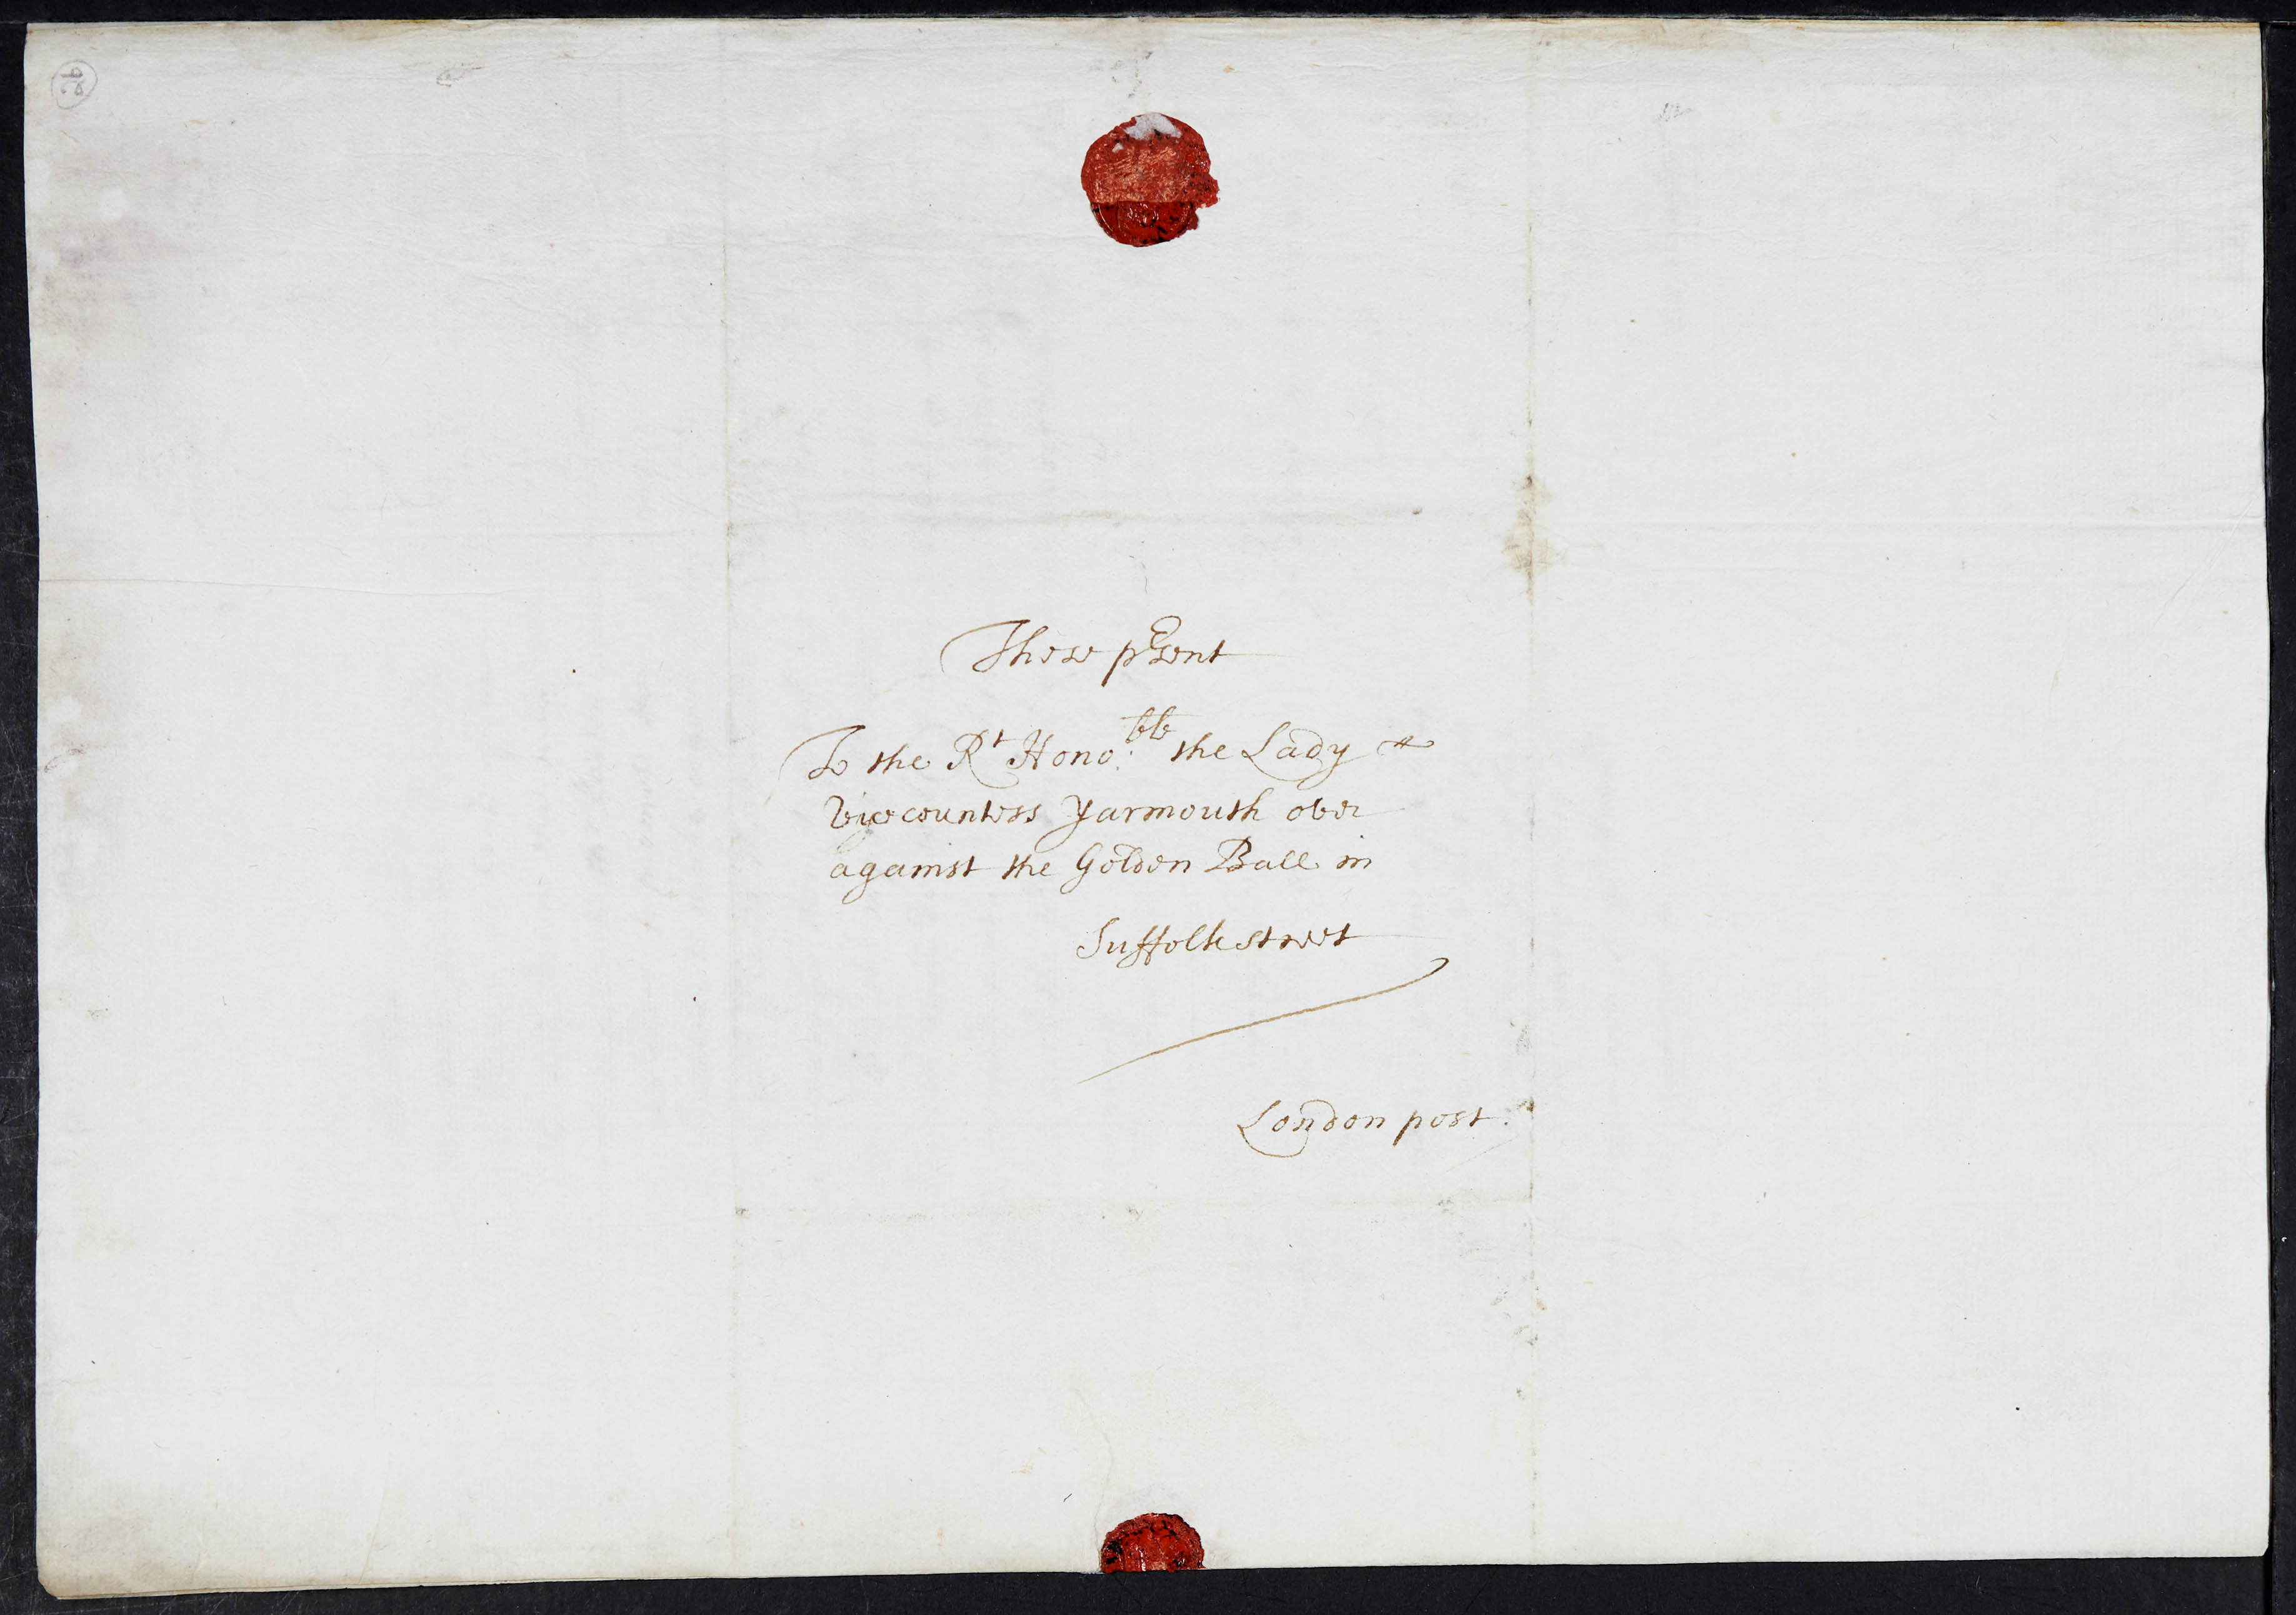 These pͬsent
To the Rᵗ Hono:ᵇˡᵉ the Lady
Vicecountess Yarmouth over
against the Golden Ball in
Suffolke street
London post.